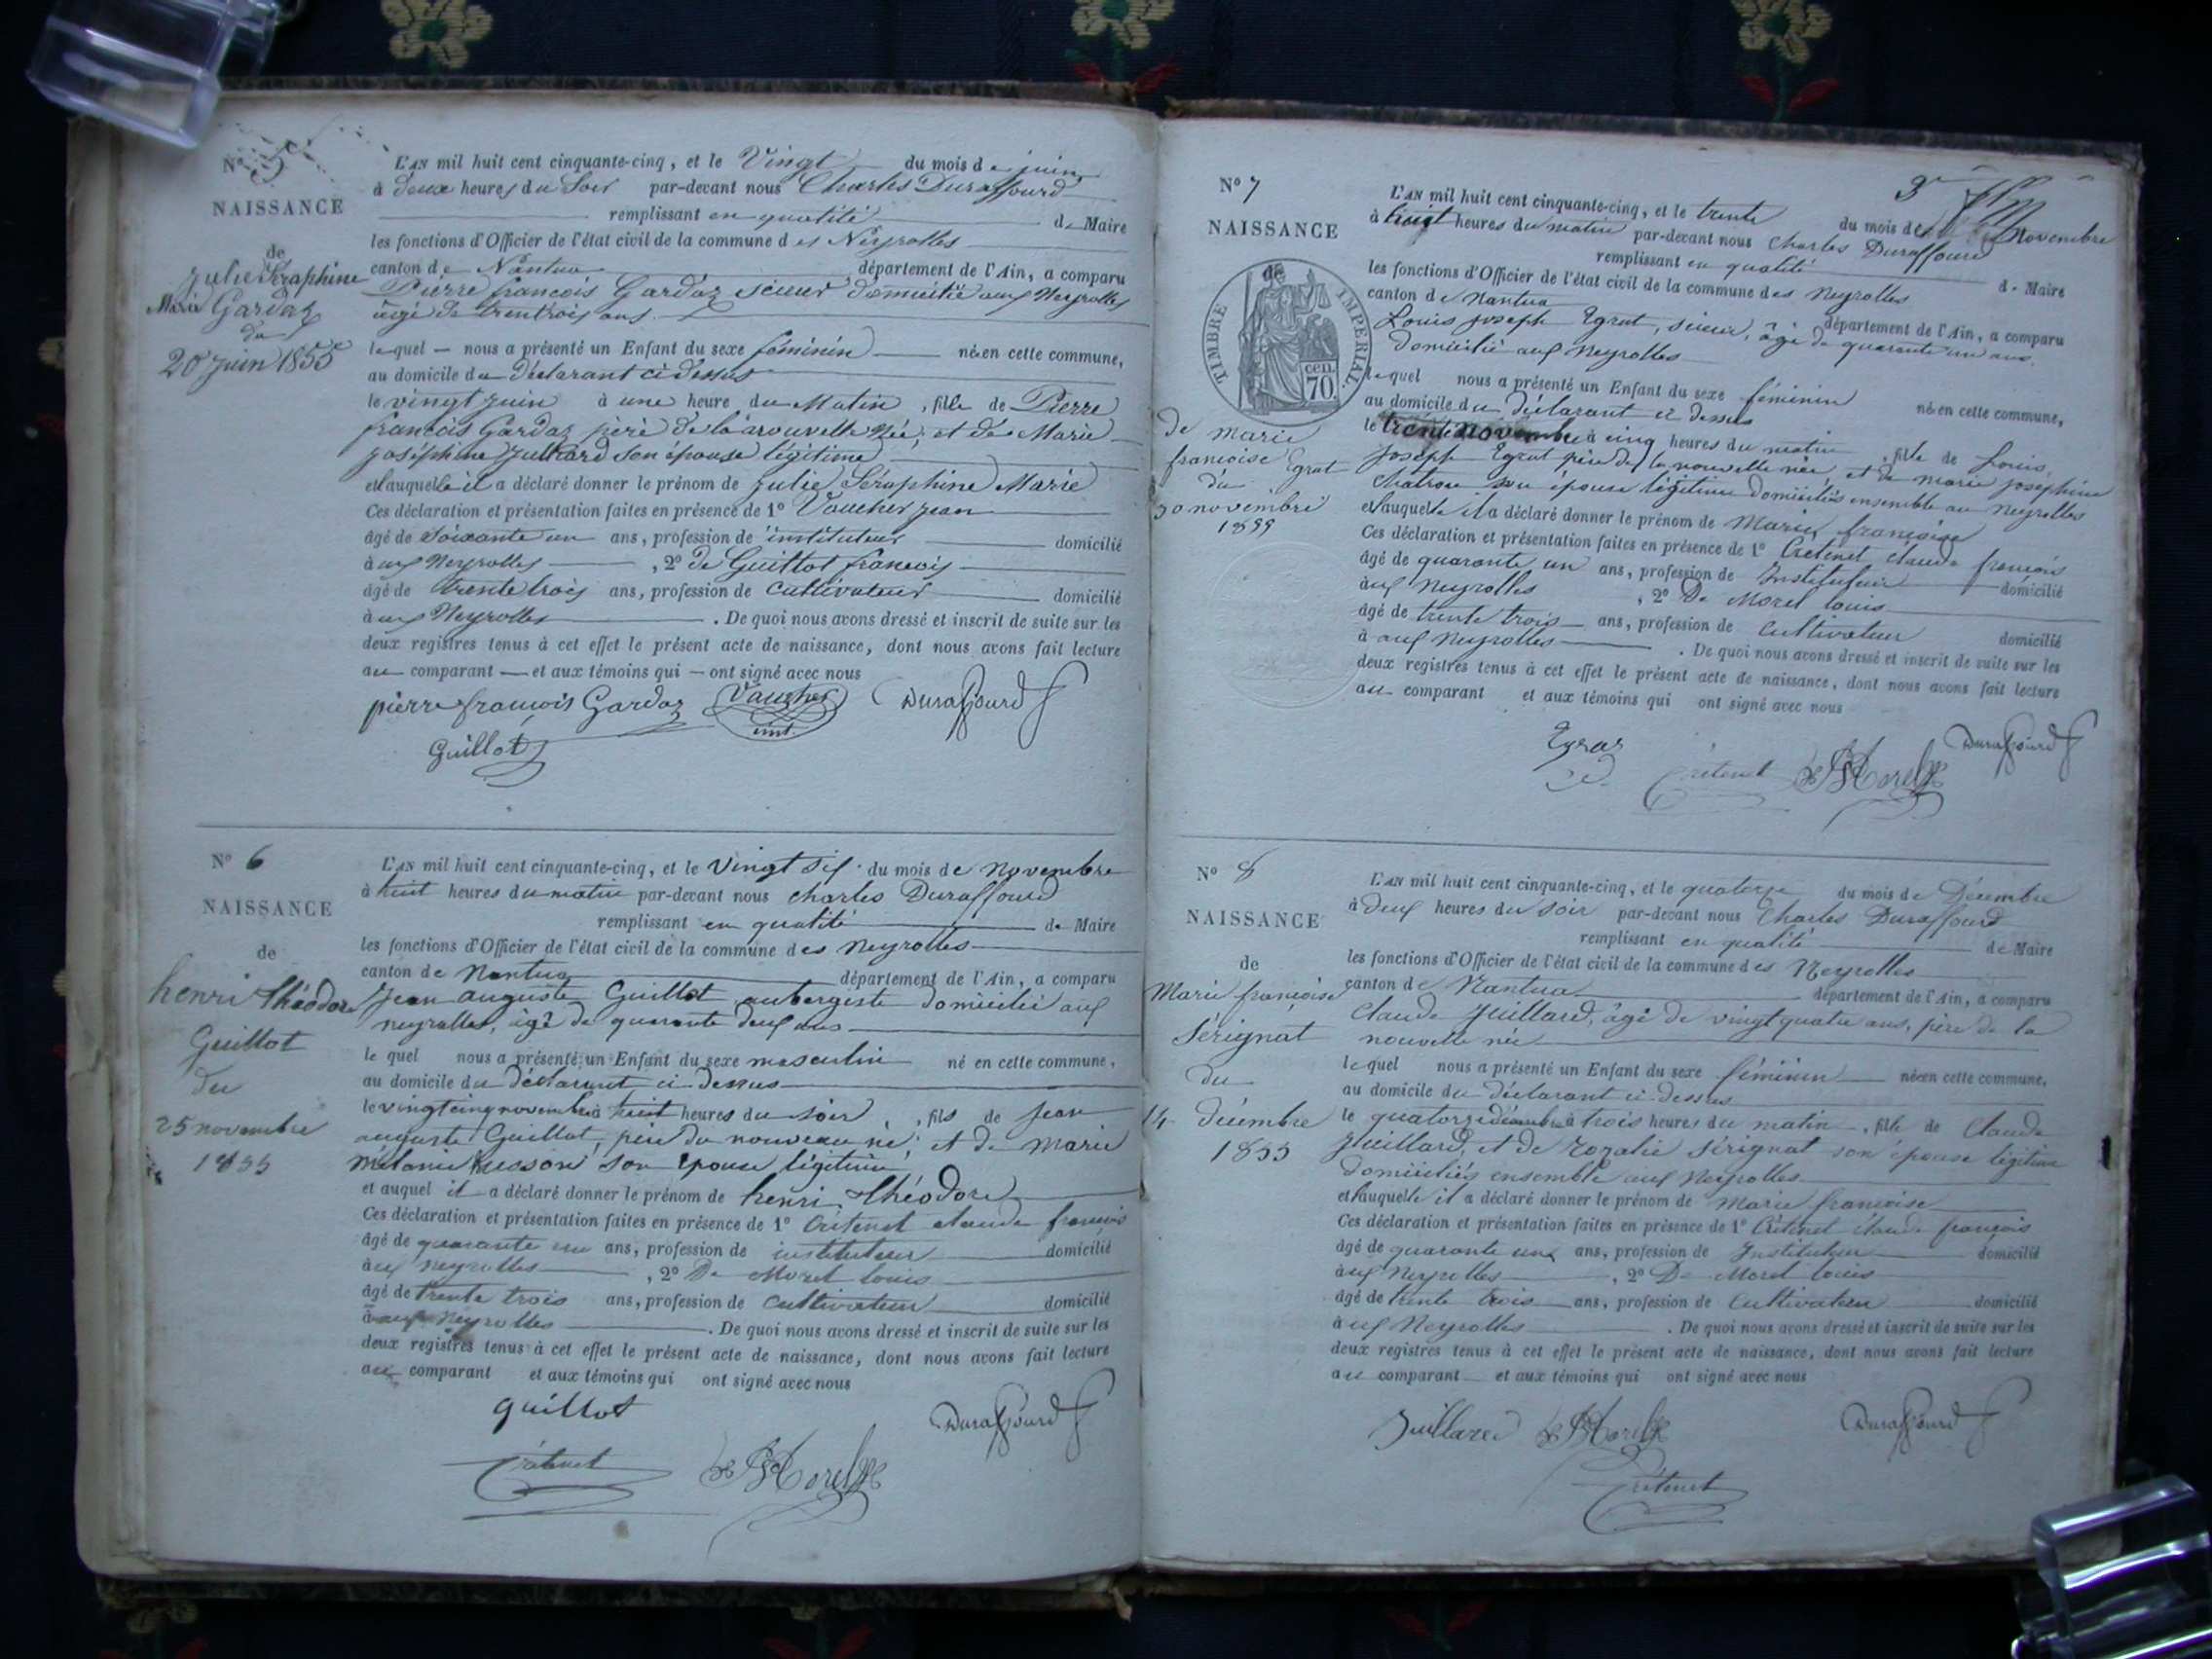 N° 5
NAISSANCE
de
Julie Séraphine
Marie Gardaz
du
20 juin 1855
L'AN mil huit cent cinquante-cinq, et le Vingt du mois de juin
à deux heures du Soir par-devant nous Charles Duraffourd
remplissant en qualité de Maire
les fonctions d'Officier de l'état civil de la commune des Neyrolles
canton de Nantua département de l'Ain, a comparu
Pierre françois Gardaz scieur domicilié aux Neyrolles
âgé de trentrois ans.
lequel nous a présenté un Enfant du sexe féminin née en cette commune,
au domicile du Déclarant ci dessus
le vingt juin à une heure du Matin, fille de Pierre
françois Gardaz père de la nouvelle Née, et de Marie
joséphine Juillard son épouse légitime
et auquelle il a déclaré donner le prénom de Julie Séraphine Marie
Ces déclaration et présentation faites en présence de 1° Vaucher jean
âgé de Soixante un ans, profession de instituteur domicilié
à aux Neyrolles, 2° de Guillot françois
âgé de trente trois ans, profession de Cultivateur domicilié
à aux Neyrolles. De quoi nous avons dressé et inscrit de suite sur les
deux registres tenus à cet effet le présent acte de naissance, dont nous avons fait lecture
au comparant et aux témoins qui ont signé avec nous
pierre françois Gardaz Vaucher Duraffourd
inst.
Guillot
N° 6
NAISSANCE
de
henri théodore
Guillot
du
25 novembre
1855
L'AN mil huit cent cinquante-cinq, et le Vingt Six du mois de Novembre
à huit heures du matin par-devant nous Charles Duraffourd
remplissant en qualité de Maire
les fonctions d'Officier de l'état civil de la commune des Neyrolles
canton de Nantua département de l'Ain, a comparu
Jean auguste Guillot aubergiste domicilié aux
neyrolles, âgé de quarante deux ans
le quel nous a présenté un Enfant du sexe masculin né en cette commune,
au domicile du déclarant ci dessus
le vingt cinq novembre à huit heures du soir, fils de Jean
auguste Guillot, père du nouveau né, et de Marie
Melanie son épouse légitime
et auquel il a déclaré donner le prénom de henri Théodore
Ces déclaration et présentation faites en présence de 1° Crétenet claude françois
âgé de quarante un ans, profession de instituteur domicilié
aux neyrolles, 2° De Morel louis
âgé de trente trois ans, profession de Cultivateur domicilié
à aux Neyrolles. De quoi nous avons dressé et inscrit de suite sur les
deux registres tenus à cet effet le présent acte de naissance, dont nous avons fait lecture
au comparant et aux témoins qui ont signé avec nous
guillot Duraffourd
Crétenet Morel
3e
N° 7
NAISSANCE
de
TIMBRE IMPERIAL
70 cen.
de marie
françoise Egrat
du
30 novembre
1855
L'AN mil huit cent cinquante-cinq, et le trente du mois de Novembre
à huit heures du matin par-devant nous Charles Duraffourd
remplissant en qualité de Maire
les fonctions d'Officier de l'état civil de la commune des Neyrolles
canton de Nantua département de l'Ain, a comparu
Louis joseph Egrat, scieur, âgé de quarante un ans
domicilié aux Neyrolles
lequel nous a présenté un Enfant du sexe féminin née en cette commune,
au domicile du déclarant ci dessus
le trente novembre à cinq heures du matin, fille de Louis
Joseph Egrat père de la nouvelle née, et de marie joséphine
Chatron son épouse légitime domiciliés ensemble au Neyrolles
et auquelle il a déclaré donner le prénom de Marie françoise
Ces déclaration et présentation faites en présence de 1° Crétenet claude françois
âgé de quarante un ans, profession de Instituteur domicilié
aux Neyrolles, 2° De Morel louis
âgé de trente trois ans, profession de Cultivateur domicilié
à aux Neyrolles. De quoi nous avons dressé et inscrit de suite sur les
deux registres tenus à cet effet le présent acte de naissance, dont nous avons fait lecture
au comparant et aux témoins qui ont signé avec nous
Duraffourd
Crétenet Morel
N° 8
NAISSANCE
de
Marie françoise
Sérignat
du
14 décembre
1855
L'AN mil huit cent cinquante-cinq, et le quatorze du mois de Décembre
à deux heures du soir par-devant nous Charles Duraffourd
remplissant en qualité de Maire
les fonctions d'Officier de l'état civil de la commune des Neyrolles
canton de Nantua département de l'Ain, a comparu
Claude Juillard, âgé de vingt quatre ans, père de la
nouvelle née
lequel nous a présenté un Enfant du sexe féminin née en cette commune,
au domicile du déclarant ci dessus
le quatorze décembre à trois heures du matin, fille de Claude
Juillard, et de rozalie Sérignat son épouse légitime
domiciliés ensemble aux Neyrolles
et auquelle il a déclaré donner le prénom de Marie françoise
Ces déclaration et présentation faites en présence de 1° Crétenet claude françois
âgé de quarante un ans, profession de Instituteur domicilié
aux Neyrolles, 2° De Morel louis
âgé de trente trois ans, profession de Cultivateur domicilié
à aux Neyrolles. De quoi nous avons dressé et inscrit de suite sur les
deux registres tenus à cet effet le présent acte de naissance, dont nous avons fait lecture
au comparant et aux témoins qui ont signé avec nous
Juillard Morel Duraffourd
Crétenet